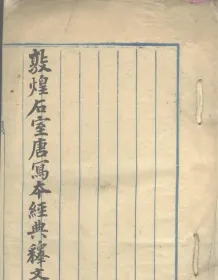 敦煌石室唐寫本經典釋文